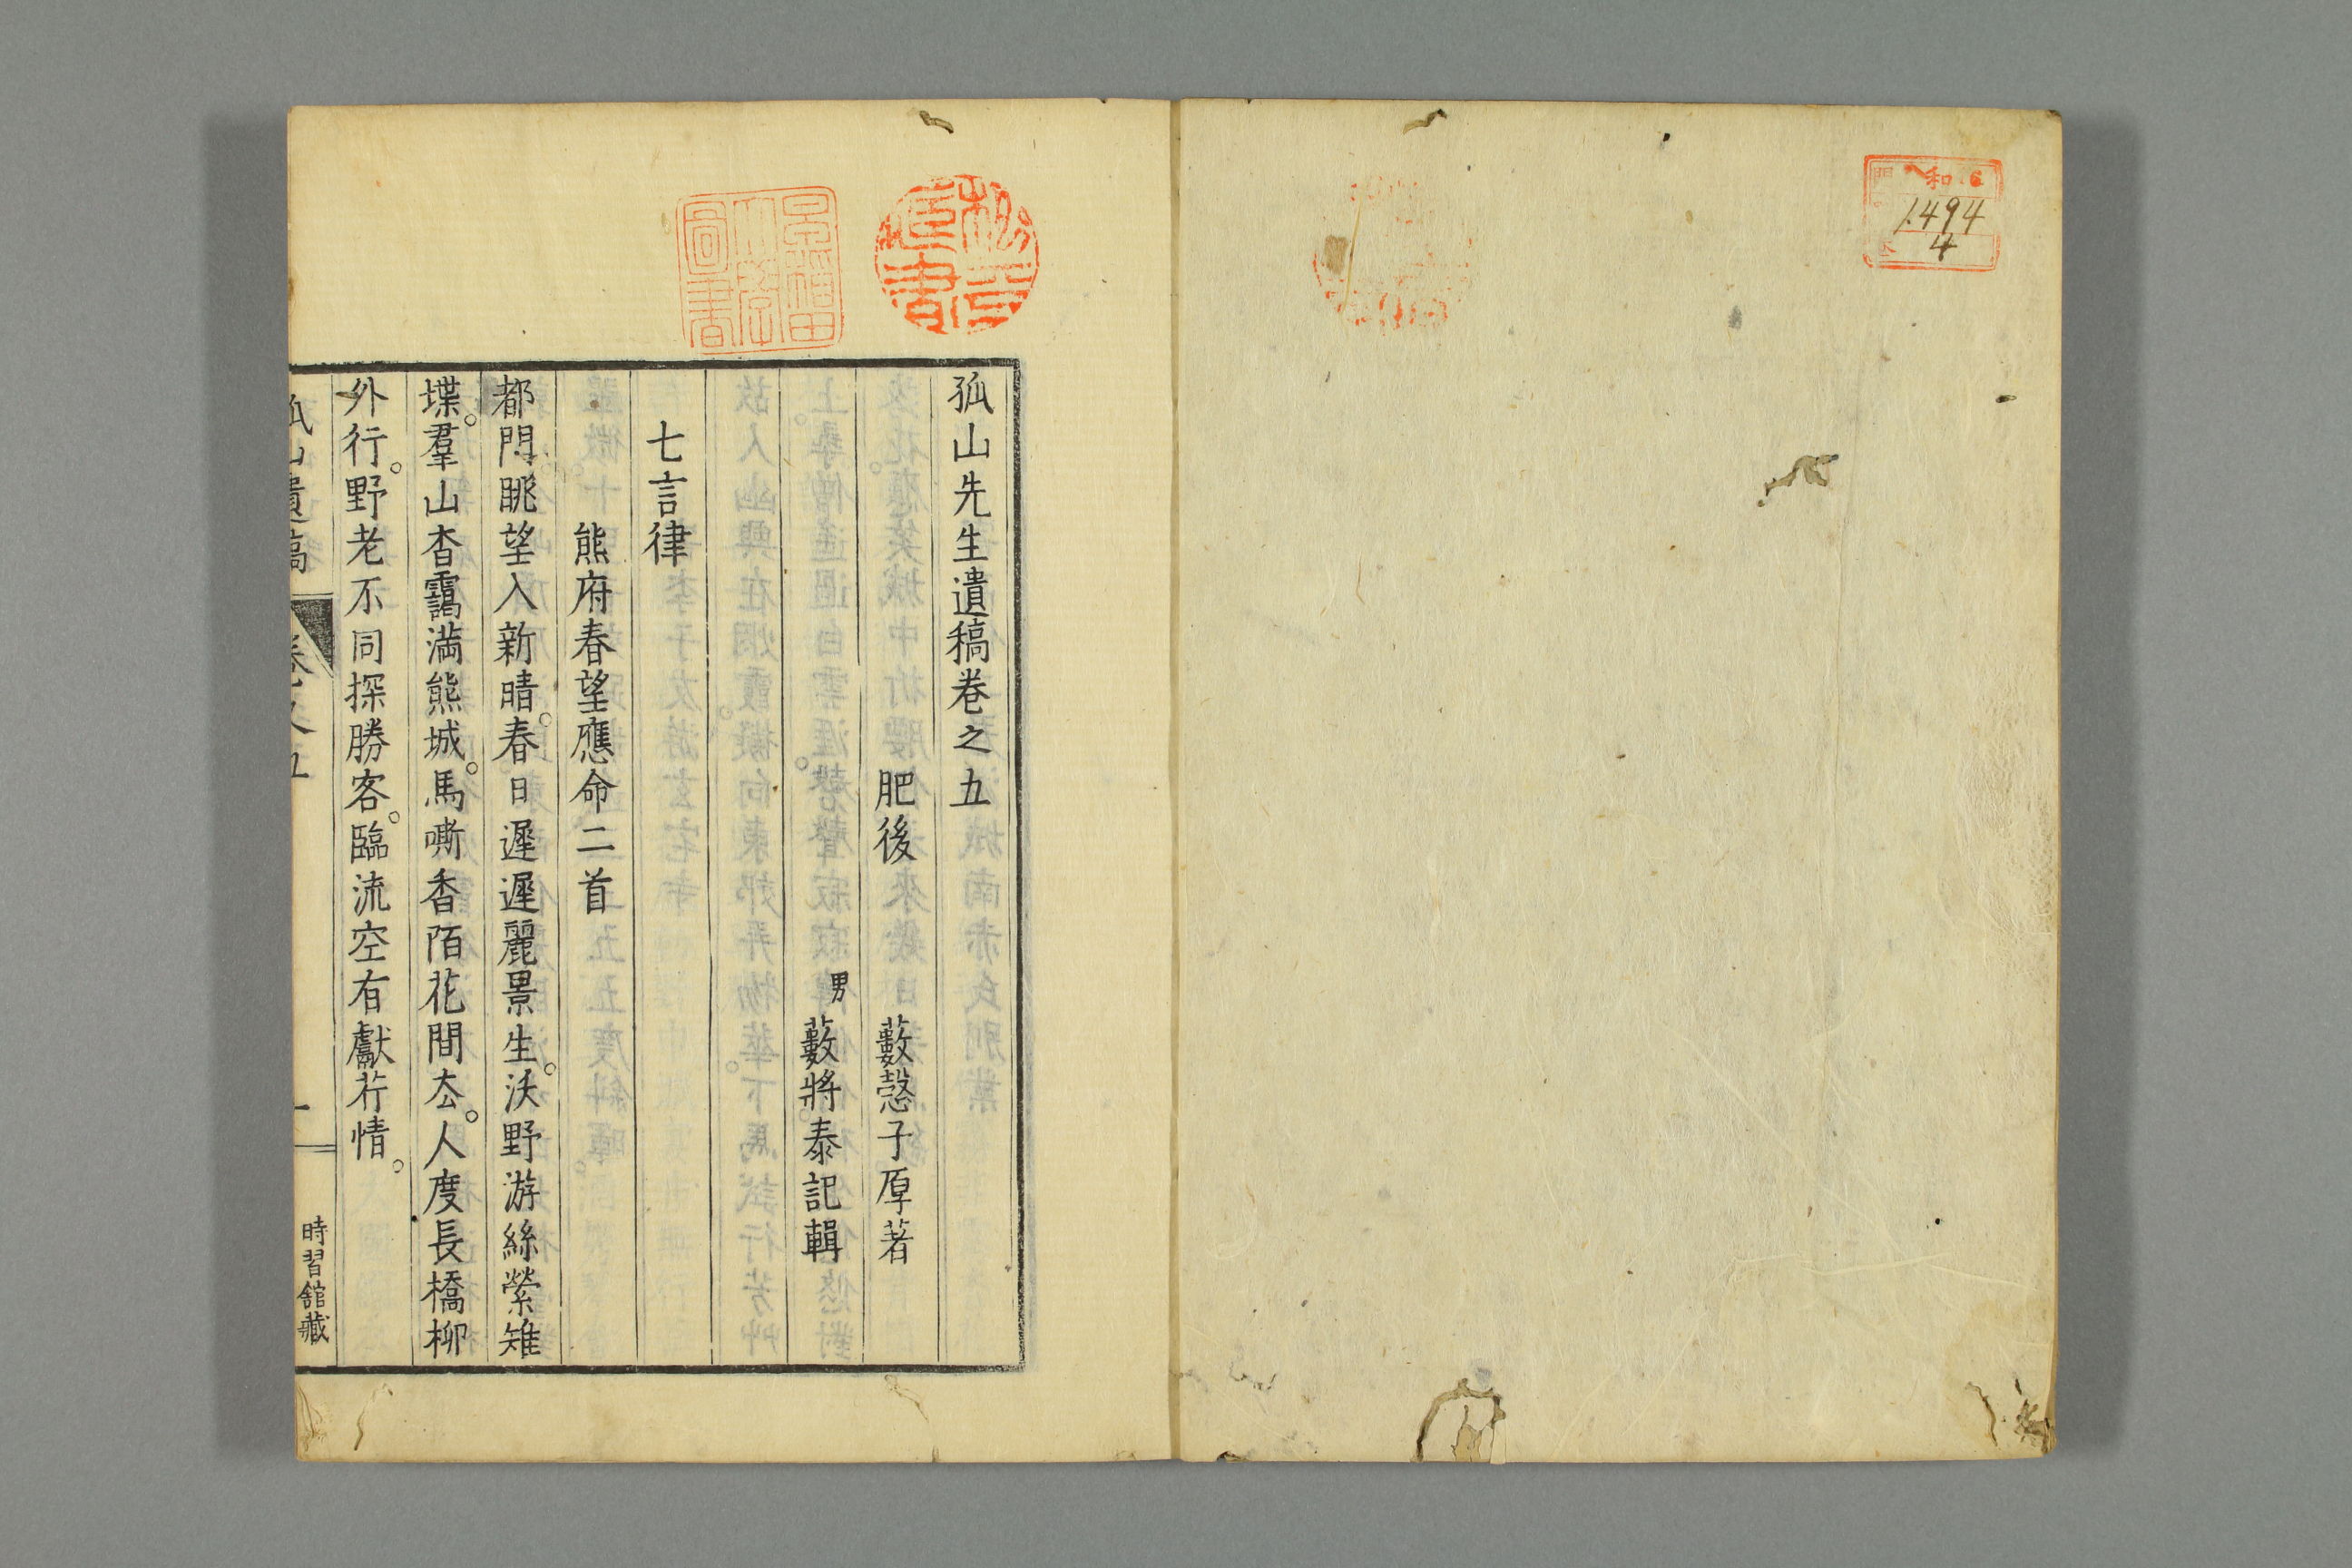 和
1494
4
孤山先生遺稿卷之五
肥後 藪愨子厚著
男 藪將泰記輯
七言律
熊府春望應命二首
都門眺望入新晴。春日遲遲麗景生。沃野游絲縈雉
堞。羣山杳靄滿熊城。馬嘶香陌花間去。人度長橋柳
外行。野老不同探勝客。臨流空有獻芹情。
孤山遺稿 卷之五 一 時習館藏